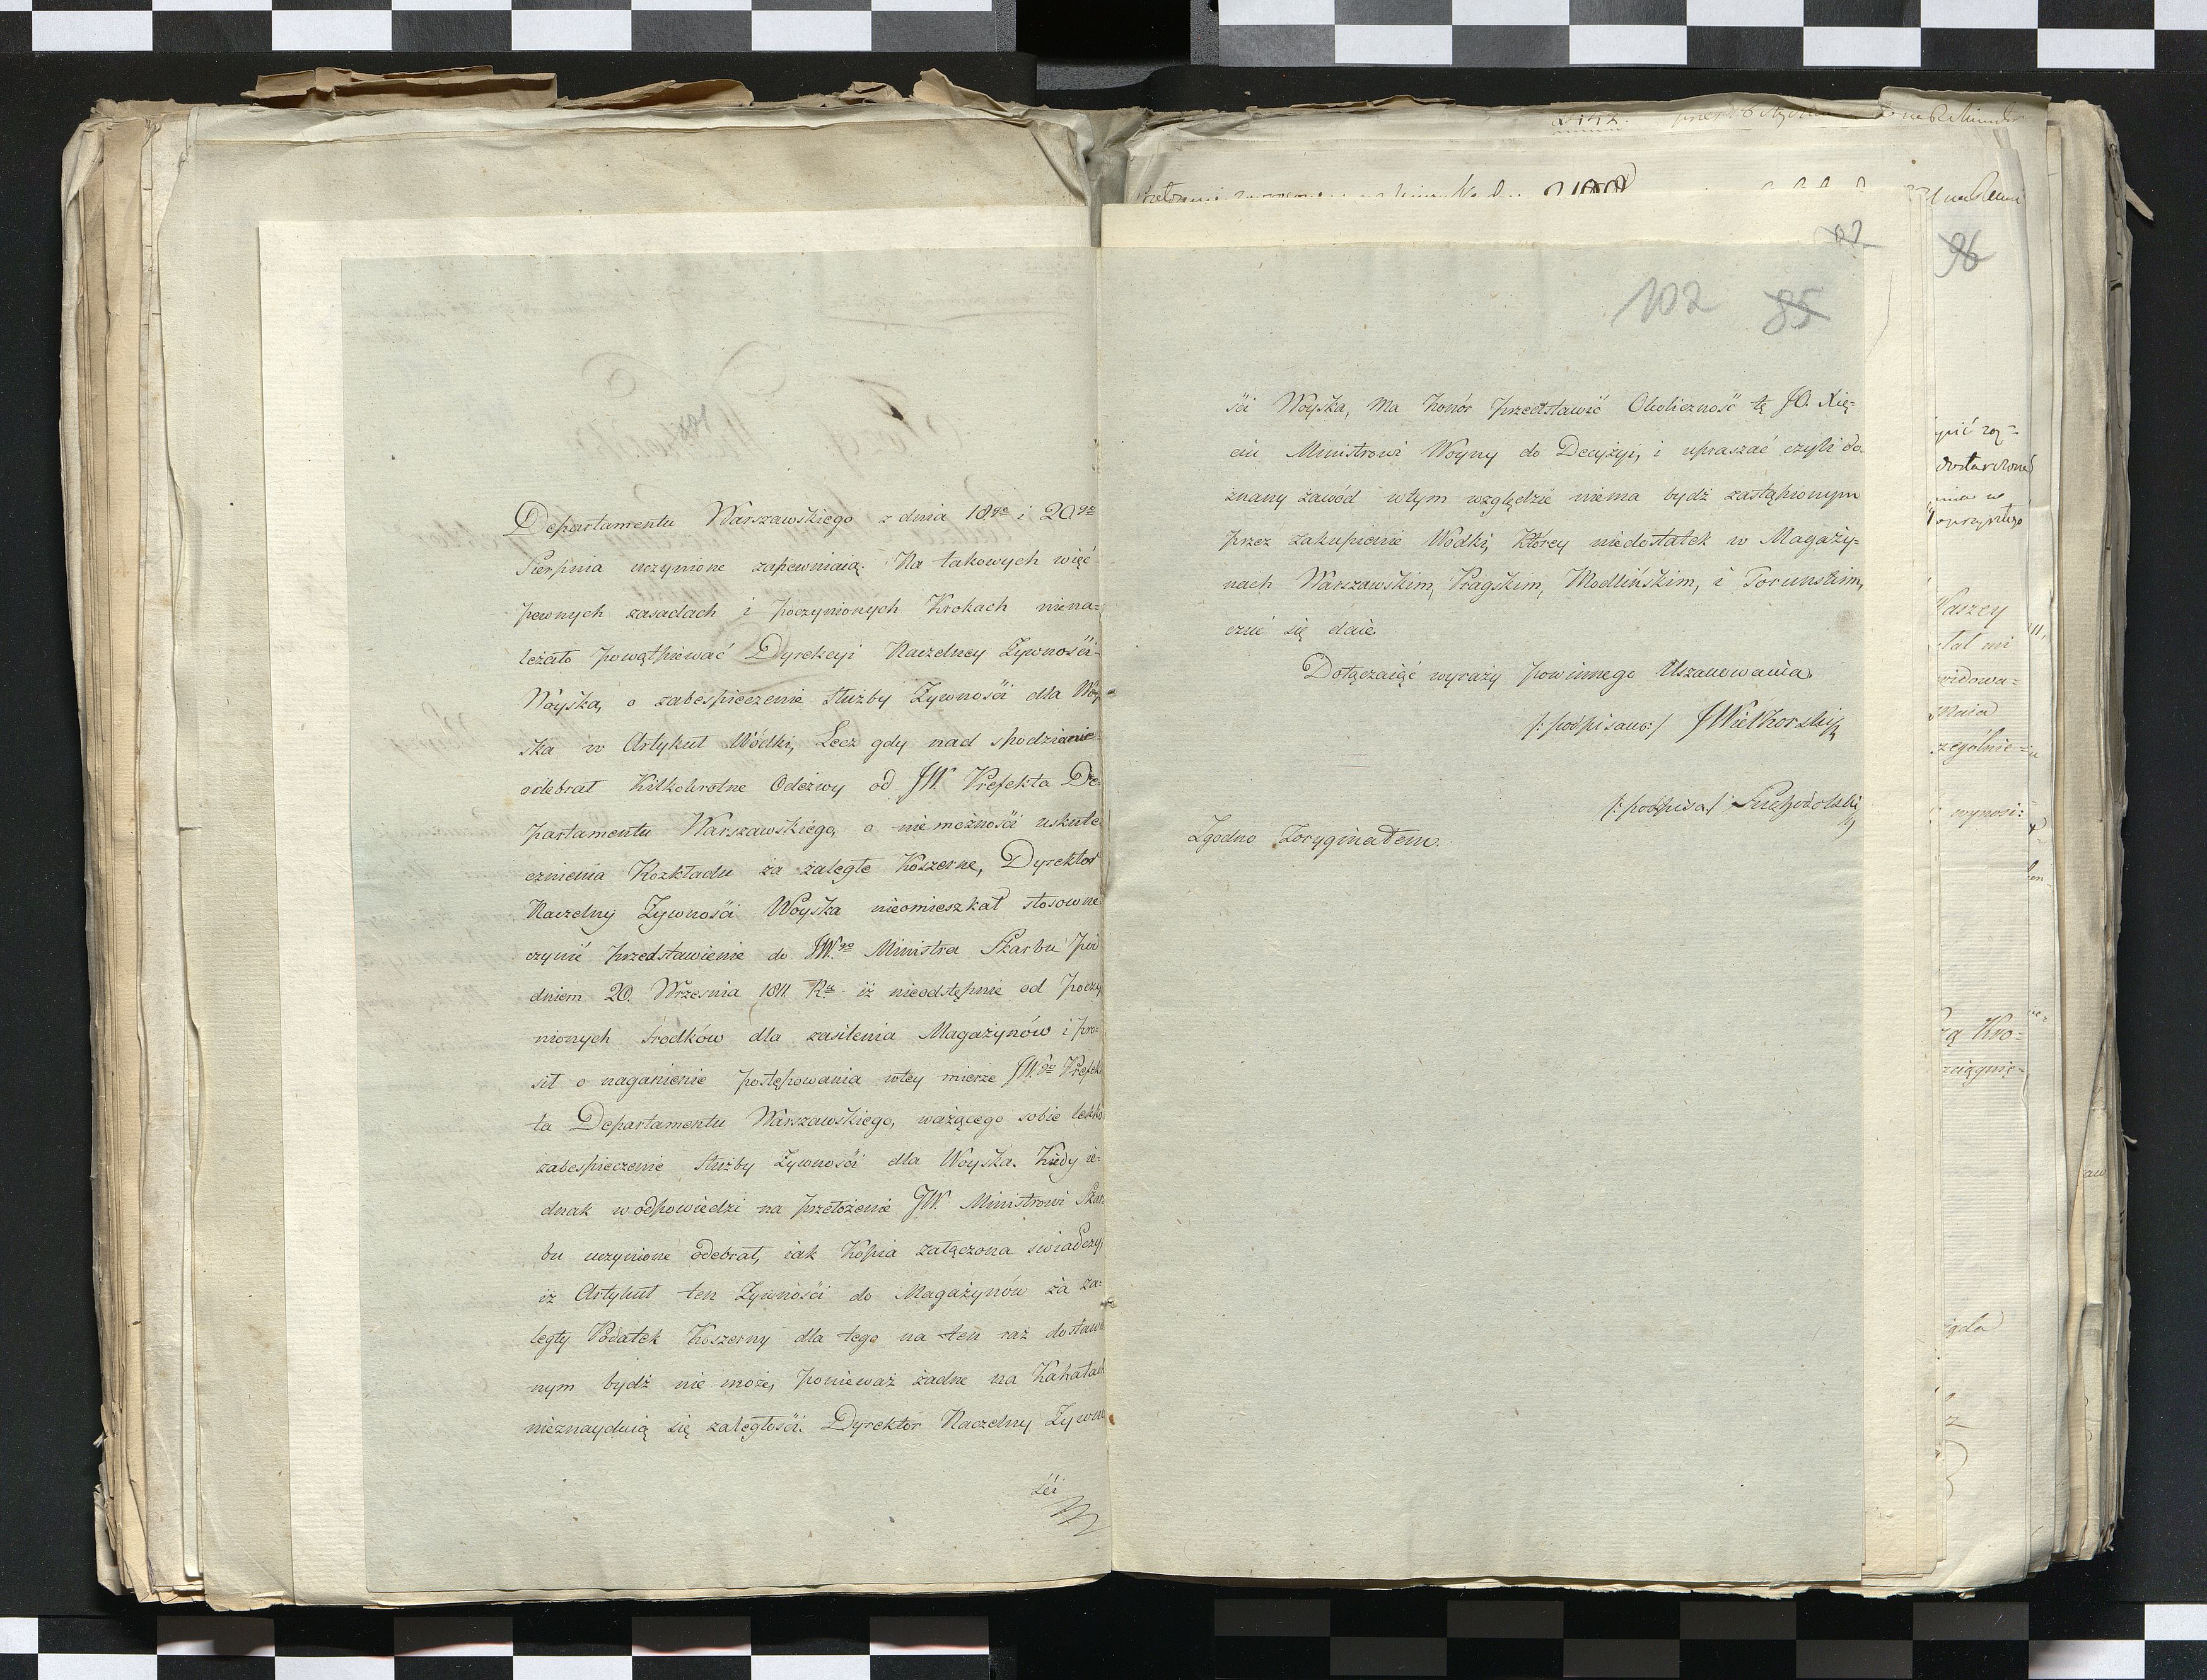 Departamentu Warszawskiego z dnia 18go i 20go
Sierpnia uczynione zapewniaią. Na takowych więc
pewnych zasadach i poczynionych Krokach niena=
leżało powątpiewać Dyrekcyi Naczelney Zywności
Woyska, o zabespieczenie służby Zywności dla Woy
ska w Artykuł Wódki, Lecz gdy nad spodzianie
odebrał Kilkokrotne Odezwy od JW. Prefekta De
partamentu Warszawskiego, o niemożności uskute
cznienia Rozkładu za zaległe Koszerne, Dyrektor
Naczelny Zywności Woyska nieomieszkał stosowne
czynić przedstawienie do JW.go Ministra Skarbu pod
dniem 20. Września 1811. Ru iż nieodstępnie od poczy
nionych środków dla zasilenia Magazynów i pro=
sił o naganienie postępowania wtey mierze JW.go Prefek
ta Departamentu Warszawskiego, ważącego sobie lekko
zabespieczenie służby Zywności dla Woyska. Kiedy ie=
dnak w odpowiedzi na przełożenie JW. Ministrowi Skar
bu uczynione odebrał, iak Kopia załączona swiadczy,
iż Artykuł ten Zywności do Magazynów za za=
legły Podatek Koszerny dla tego na ten raz dostawio
nym bydź nie może, ponieważ żadne na Kahałach
nieznayduią się zaległości. Dyrektor Naczelny Zywno
ści
102 85
ści Woyska, ma honór przedstawić Okoliczność tę JO. Xię=
ciu Ministrowi Woyny do Decyzyi, i upraszać czyli do=
znany zawód wtym względzie niema bydź zastąpionym
przez zakupienie Wódki, Którey niedostatek w Magazy=
nach Warszawskim, Pragskim, Modlińskim, i Toruńskim,
czuć się daie.
Dołączaiąc wyrazy powinnego Uszanowania.
/:podpisano:/ JWielhorski
/:podpisa:/
Zgodno Zoryginałem.
96